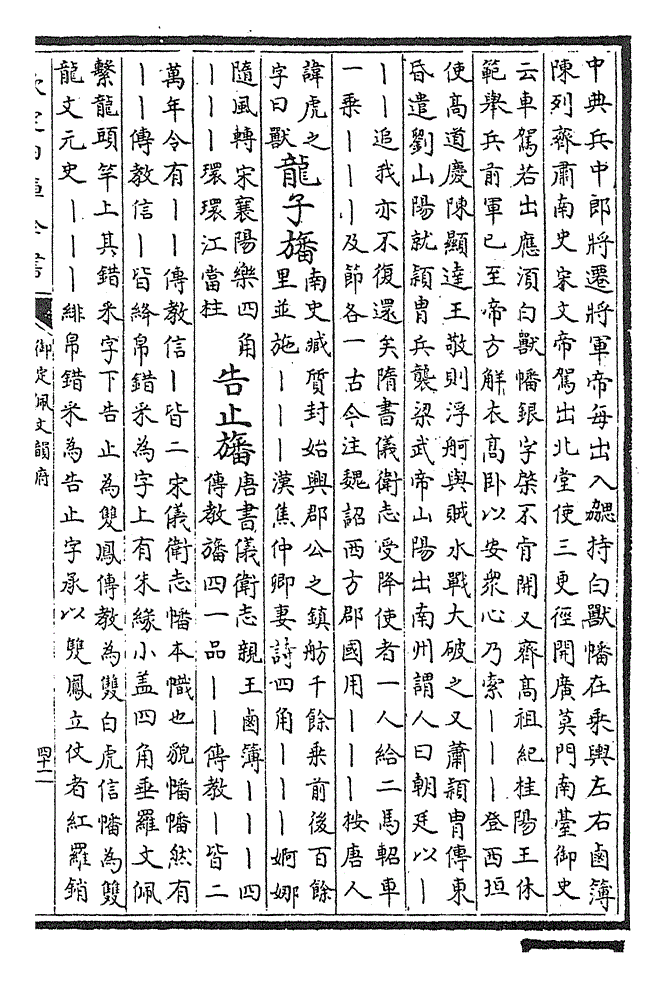 中典兵中郎將遷將軍帝每出入𩋾持白獸幡在乘輿左右鹵簿
陳列齊肅南史宋文帝駕出北堂使三更徑開廣莫門南臺御史
云車駕若出應須白獸幡銀字棨不肯開又齊髙祖紀桂陽王休
範舉兵前軍已至帝方解衣髙卧以安衆心乃索丨丨丨登西垣
使髙道慶陳顯達王敬則浮舸與賊水戰大破之又蕭頴胄傳東
昏遣劉山陽就頴胄兵襲梁武帝山陽出南州謂人曰朝廷以丨
丨丨追我亦不復還矣隋書儀衛志受降使者一人給二馬軺車
一乘丨丨丨及節各一古今注魏詔西方郡國用丨丨丨按唐人
諱虎之
字曰獸
龍子旛
南史臧質封始興郡公之鎮舫千餘乘前後百餘
里並施丨丨丨漢焦仲卿妻詩四角丨丨丨婀娜
隨風轉宋襄陽樂四角
丨丨丨環環江當柱
告止旛
唐書儀衛志親王鹵簿丨丨丨四
傳教旛四一品丨丨傳教丨皆二
萬年令有丨丨傳教信丨皆二宋儀衛志幡本幟也貌幡幡然有
丨丨傳教信丨皆絳帛錯采為字上有朱綠小盖四角垂羅文佩
繫龍頭竿上其錯采字下告止為雙鳳傳教為雙白虎信幡為雙
龍文元史丨丨丨緋帛錯采為告止字承以雙鳳立仗者紅羅銷
御定佩文韻府
四十二